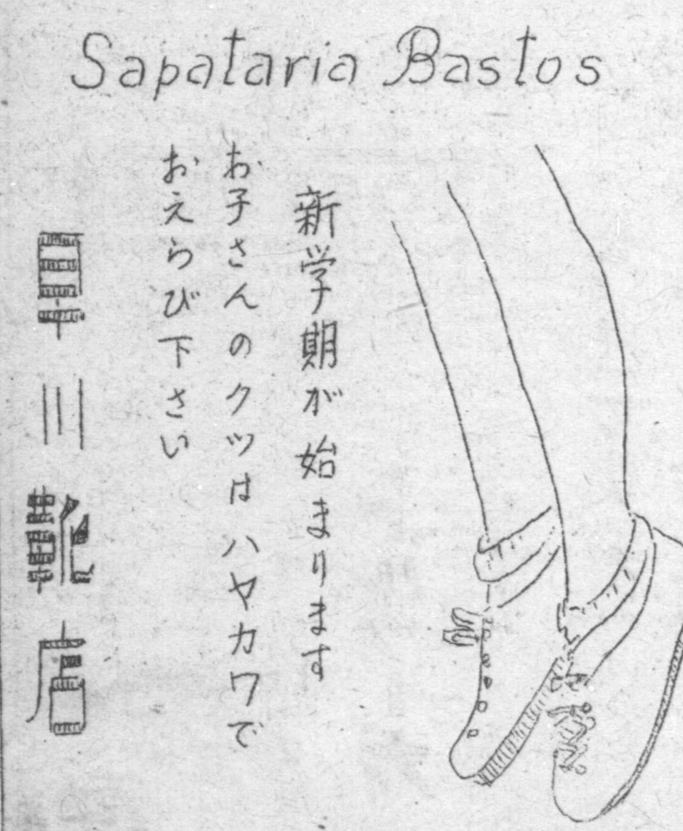 Sapataria Bastos
新学期が始まります
お子さんのクツはハヤカワで
おえらび下さい
早川靴店